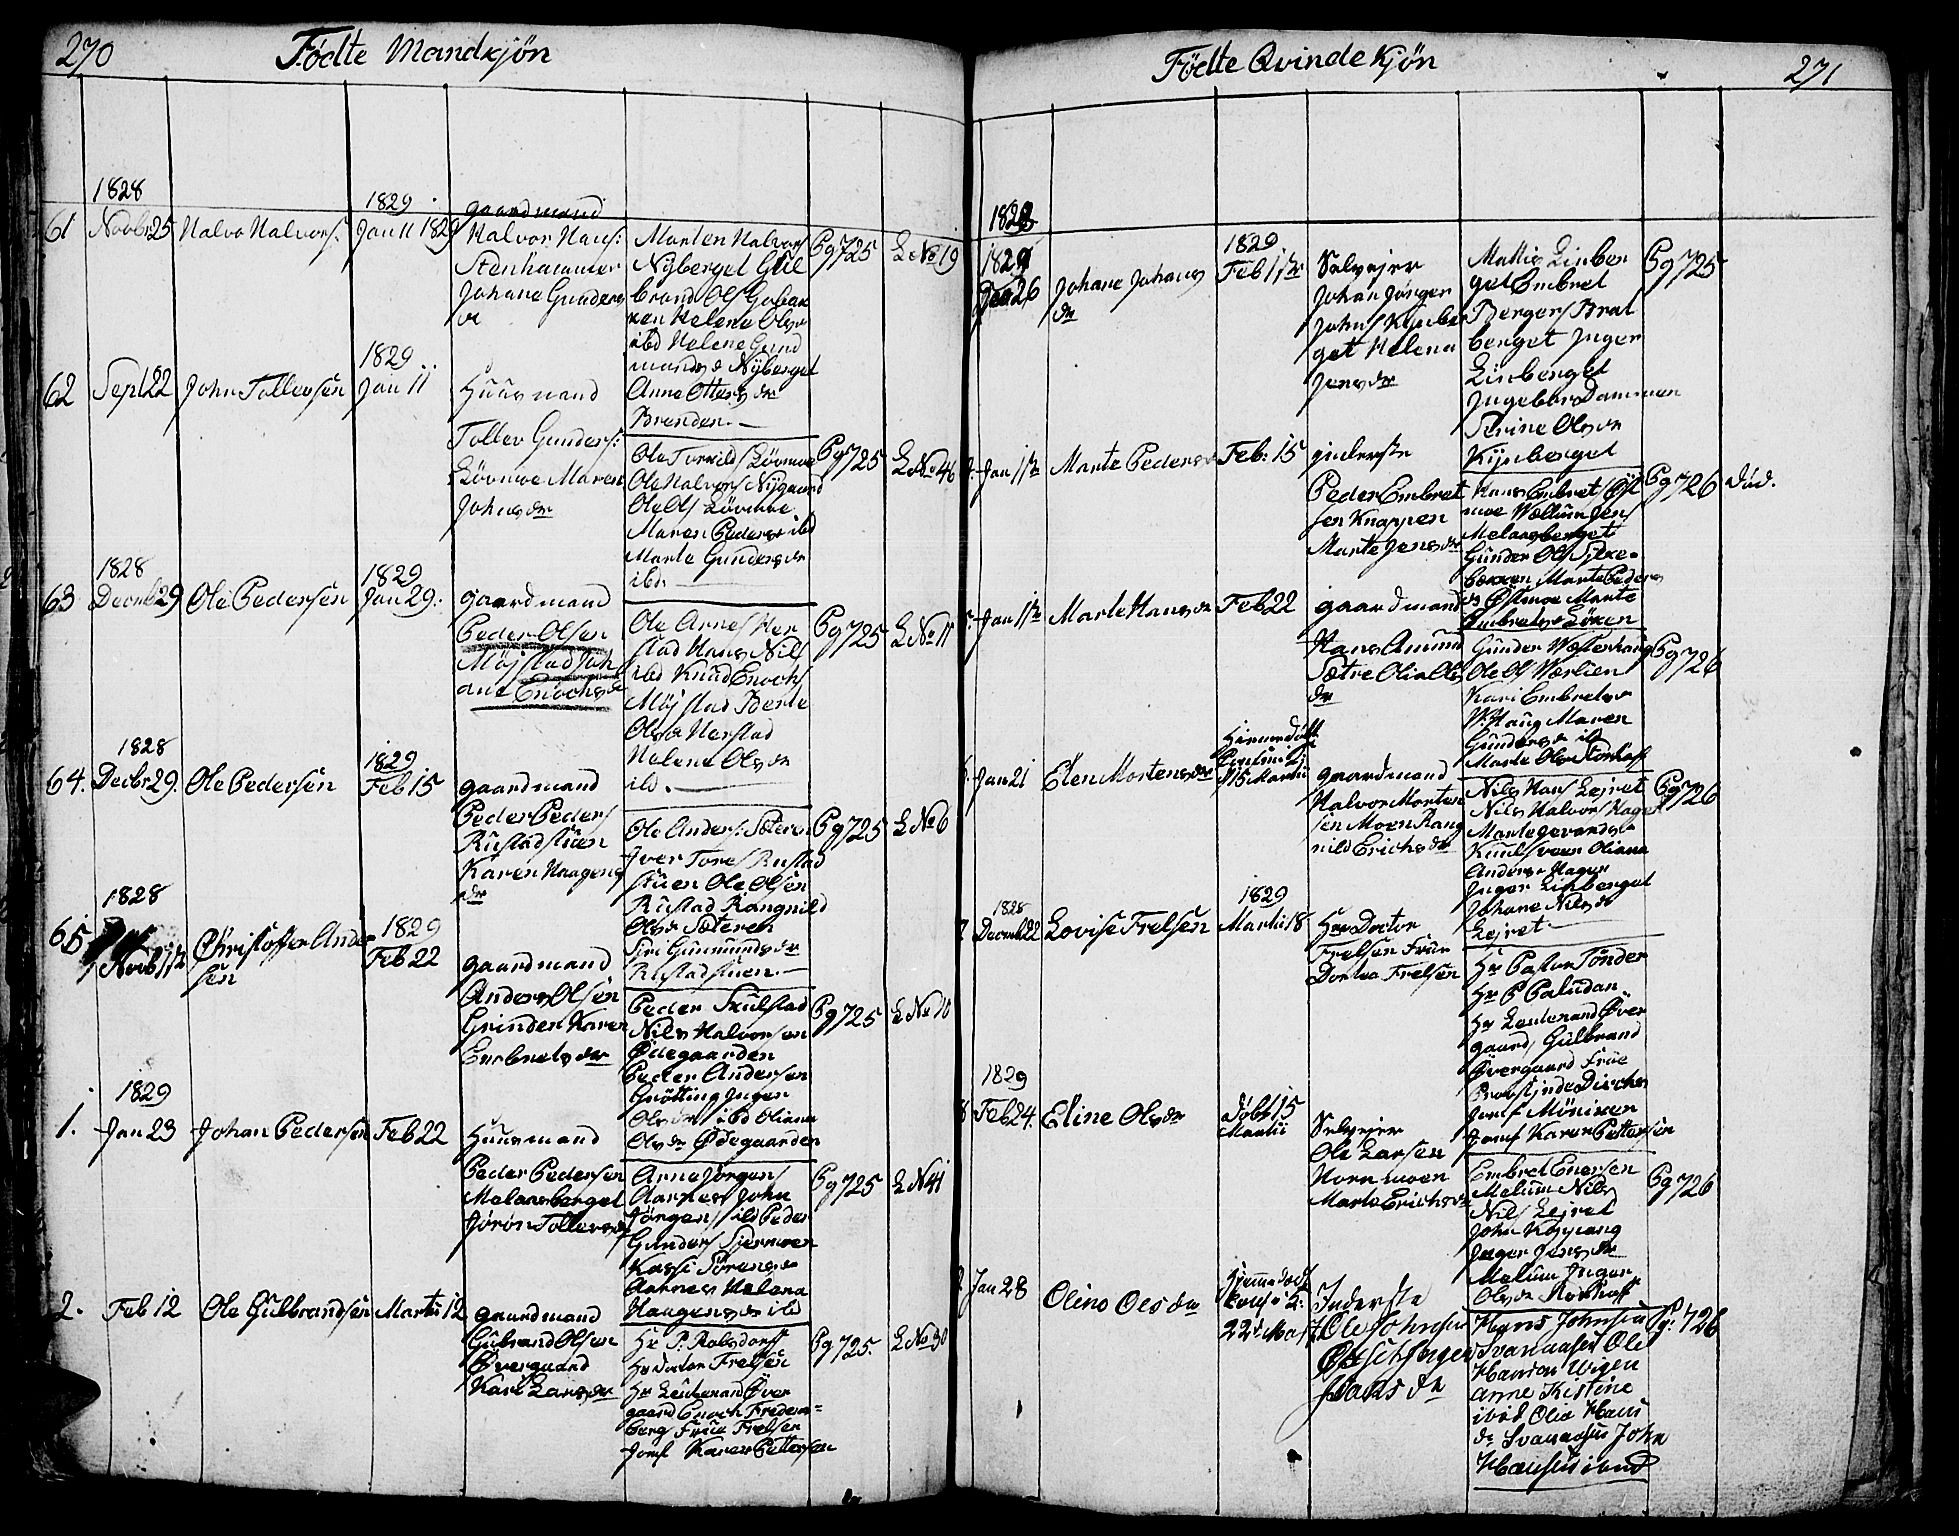 270
Födte Mandkjön
1828
61 Novbr 25 Halvo Halvors: 1829 Jan 11 1829
gaardmand
Halvor Hans:
Stenhammer
Johane Gunders
dr
Morten Halvors
Nyberget Gul
brand Ols
Helene Ols dr
ibd Helene Gund
mands dr Nyberget
Anne Otters dr
Brenden.
Pg 725 L No 19
62 Sept 22 John Tollevsen 1829 Jan 11
Huusmand
Tollev Gunders:
Lövmoe Maren
Johns dr
Ole Torkilds Lövmoe
Ole Halvors Nygaard
Ole Ols Lövmoe
Maren Peders dr ibd
Marte Gunders dr
ibd.
Pg 725 L No 46
1828
63 Decmb 29 Ole Pedersen 1829 Jan 29.
gaardmand
Peder Olsen
Möjstad Joh
ane Enochs dr
Ole Arnes Her
stad Hans Nils
ibd Knud Enochs
Möjstad Berte
Ols dr Herstad
Helene Ols dr
ibd.
Pg 725 L No 11
1828
64. Decbr 29. Ole Pedersen 1829 Feb 15
gaardmand
Peder Peders
Rustadstuen
Karen Haagens
dr
Ole Anders: Sæteren
Iver Tores Rustad
stuen Ole Olsen
Rustad Rangnild
Ols dr Sæteren
Siri Gunmunds dr
Rustadstuen.
Pg 725 L No 6
1828
65 Novb 11te Christoffer Ander
sen
1829
Feb 22
gaardmand
Anders Olsen
Grinder Karen
Embrets dr
Peder Skulstad
Nils Halvorsen
Ödegaarden
Peder Andersen
Grötting Inger
Ols dr ibd Oliana
Ols dr Ödegaarden
Pg 725 L No 10
1829
1. Jan 23 Johan Pedersen Feb 22
Huusmand
Peder Pedersen
Melaasberget
Jörön Tollevs dr
Arne Jörgens
Aarnes John
Jörgens ibd Peder
Gunders Stermoen
Kassi Sörens dr
Aarnes Helena
Haagens dr ibd
Pg 725 L N 41
2. Feb 12 Ole Gulbrandsen Martii 12
gaardmand
Gubrand Olsen
Övergaard
Kari Lars dr
Hr P. Ralsdorff
Hr doctor Frelsen
Hr Leutenand Över
gaard Enoch Fredens=
berg Frue Frelsen
Jomf Karen Pettersen
Pg 725. L No 30
Födte Qvindekjön
271
1828
1829
Jan 26 Johane Johans
dr
1829
Feb 1ste
Selvejer
Johan Jörgen
Johns Kynber
get Helena
Jens dr
Mattis Linber
get Embret
Bergers Brat
berget Inger
Linberget
Ingebor Dammen
Serine Ols dr
Kynberget
Pg 725
Jan 11te Marte Peders dr Feb: 15
inderste
Peder Embret
sen Knappen
Marte Jens dr
Hans Embrets Öst
moe Wællum Jens
Melaasberget
Gunder Ols Silke=
bækken Marte Peders
dr Östmoe Marte
Embrets dr Löken
Pg 726 död.
Jan 11te Marte Hans dr Feb 22
gaardmand
Hans Amund
Sætre Olia Ols
dr
Gunder Westerhaug
Ole Ols Værlien
Kari Embrets dr
W:Haug Maren
Gunders dr ibd
Marte Ols dr
Pg 726
Jan 21 Elen Mortens dr
Hiemmedöbt
15 Martii
gaardmand
Halvor Morten
sen Moen Rang
nild Erichs dr
Nils Hans Lejret
Nils Halvors Hagen
Marte Jevards dr
Knulsveen Oliana
Anders dr Hagen
Inger Linberget
Johane Nils dr
Lejret
Pg 726
1828
7 Decmb 22 Lovise Frelsen 1829 Martii 18
Hr Doctor
Frelsen Frue
Dortea Frelsen
Hr Pastor Tönder
Hr P Paludan
Hr Leutenand Över
gaard, Gulbrand
Övergaard Frue
Jomf Möniken
Jomf Karen Pettersen
1829
8 Feb 24. Eline Ols dr Döbt 15
Martii
Selvejer
Ole Larsen
Nornmoen
Marte Erichs dr
Embret Enersen
Melum Nils
Nils Lejret
John Koppang
Inger Jens dr
Melum Inger
Ols dr
Pg 726
Jan 28 Oline Ols dr
Hjemmedöbt
22de Mart
Inderste
Ole Johnsen
Hans dr
Hans Johnsen
Svanaasen Ole
Hansen Wigen
Anne Kistine
ibid Olia Hans
dr Svanaasen John
Hansen ibid
Pg: 726